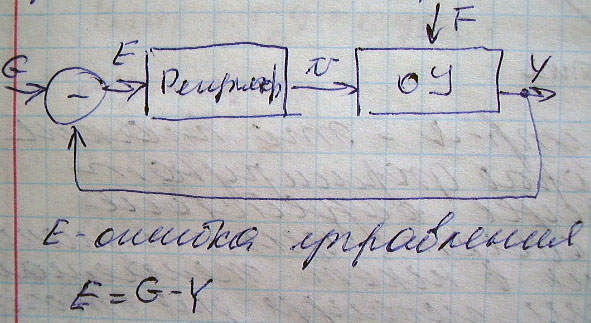 F
G E Регулятор U ОУ Y
-
E - ошибка управления
E = G - Y